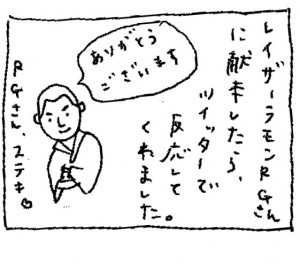 レイザーラモンRGさん
に献本したら、
ツイッターで
反応して
くれました。
ありがとう
ございます
RGさん、ステキ♡